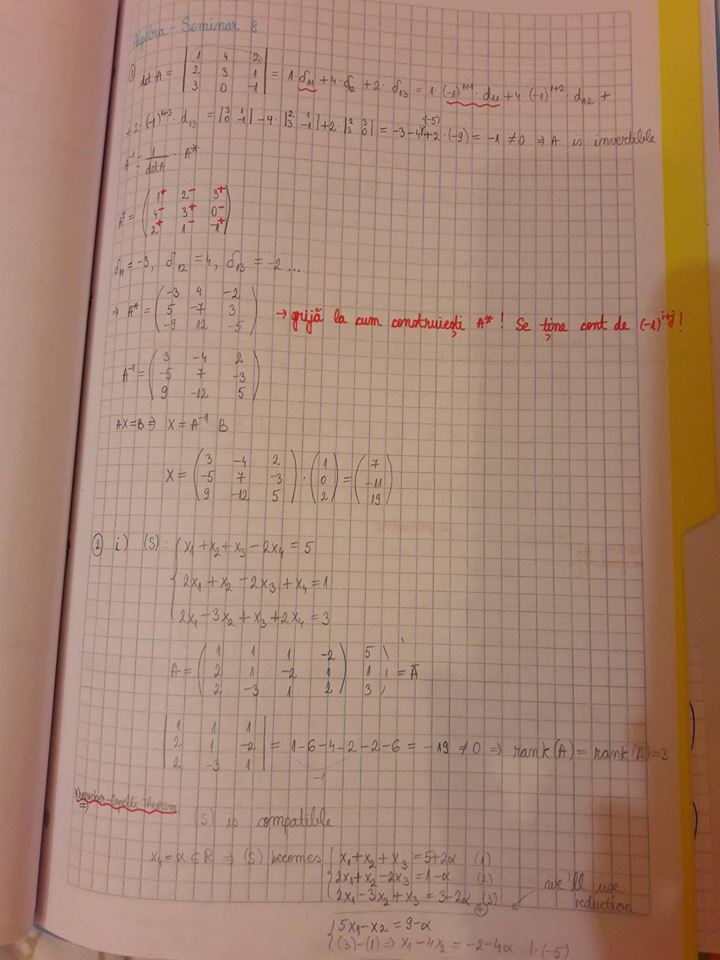 Algebra - Seminar 8
① det A = | 1 4 2 ; 2 3 1 ; 3 0 -1 | = 1·δ₁₁ + 4·δ₁₂ + 2·δ₁₃ = 1·(-1)¹⁺¹·d₁₁ + 4·(-1)¹⁺²·d₁₂ +
+2·(-1)¹⁺³·d₁₃ = | 3 1 ; 0 -1 | - 4·| 2 1 ; 3 -1 | + 2·| 2 3 ; 3 0 | = -3-4·(-5)+2·(-9) = -1 ≠ 0 ⇒ A is invertible
A⁻¹ = 1/det A · A*
Aᵗ = ( 1⁺ 2⁻ 3⁺ ; 4⁻ 3⁺ 0⁻ ; 2⁺ 1⁻ -1⁺ )
δ₁₁ = -3, δ₁₂ = 4, δ₁₃ = -2 ...
⇒ A* = ( -3 4 -2 ; 5 -7 3 ; -9 12 -5 ) → grijă la cum construiești A*! Se ține cont de (-1)ⁱ⁺ʲ!
A⁻¹ = ( 3 -4 2 ; -5 7 -3 ; 9 -12 5 )
AX=B ⇒ X = A⁻¹·B
X = ( 3 -4 2 ; -5 7 -3 ; 9 -12 5 ) · ( 1 ; 0 ; 2 ) = ( 7 ; -11 ; 19 )
② i) (S): { x₁+x₂+x₃-2x₄ = 5
2x₁+x₂-2x₃+x₄ = 1
2x₁-3x₂+x₃+2x₄ = 3
A = ( 1 1 1 -2 ; 2 1 -2 1 ; 2 -3 1 2 ) 5 ; 1 ; 3 ) = Ā
| 1 1 1 ; 2 1 -2 ; 2 -3 1 | = 1-6-4-2-2-6 = -19 ≠ 0 ⇒ rank(A) = rank(Ā) = 3
-1
Kronecker-Capelli theorem
⇒ (S) is compatible
x₄ = α ∈ R ⇒ (S) becomes { x₁+x₂+x₃ = 5+2α (1)
2x₁+x₂-2x₃ = 1-α (2)
2x₁-3x₂+x₃ = 3-2α (3)
we'll use reduction
{ 5x₁-x₂ = 9-α
(3)-(1) ⇒ x₁-4x₂ = -2-4α |·(-5)